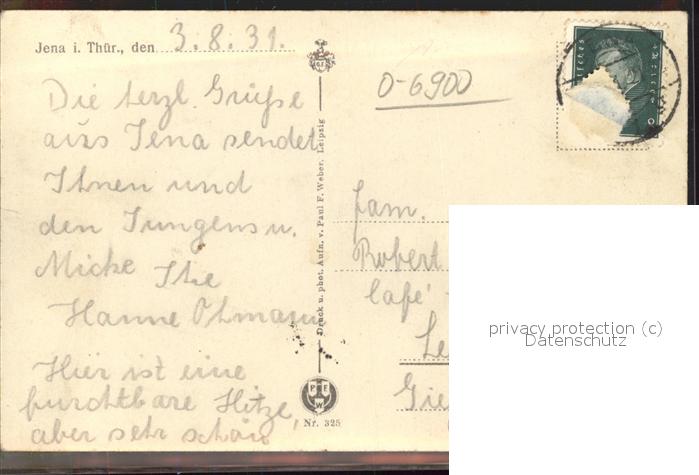 Jena i. Thür., den 3.8.31.
Die herzl. Grüße
aus Jena sendet
Ihnen und
den Jungens u.
Micke Ihe
Hanne Ohmann
Hier ist eine
furchtbare Hitze,
aber sehr schön
Druck u. phot. Aufn. v. Paul F. Weber, Leipzig
P F W
Nr. 325
0-6900
Fam.
Robert
Café
Le
Gie
privacy protection (c)
Datenschutz